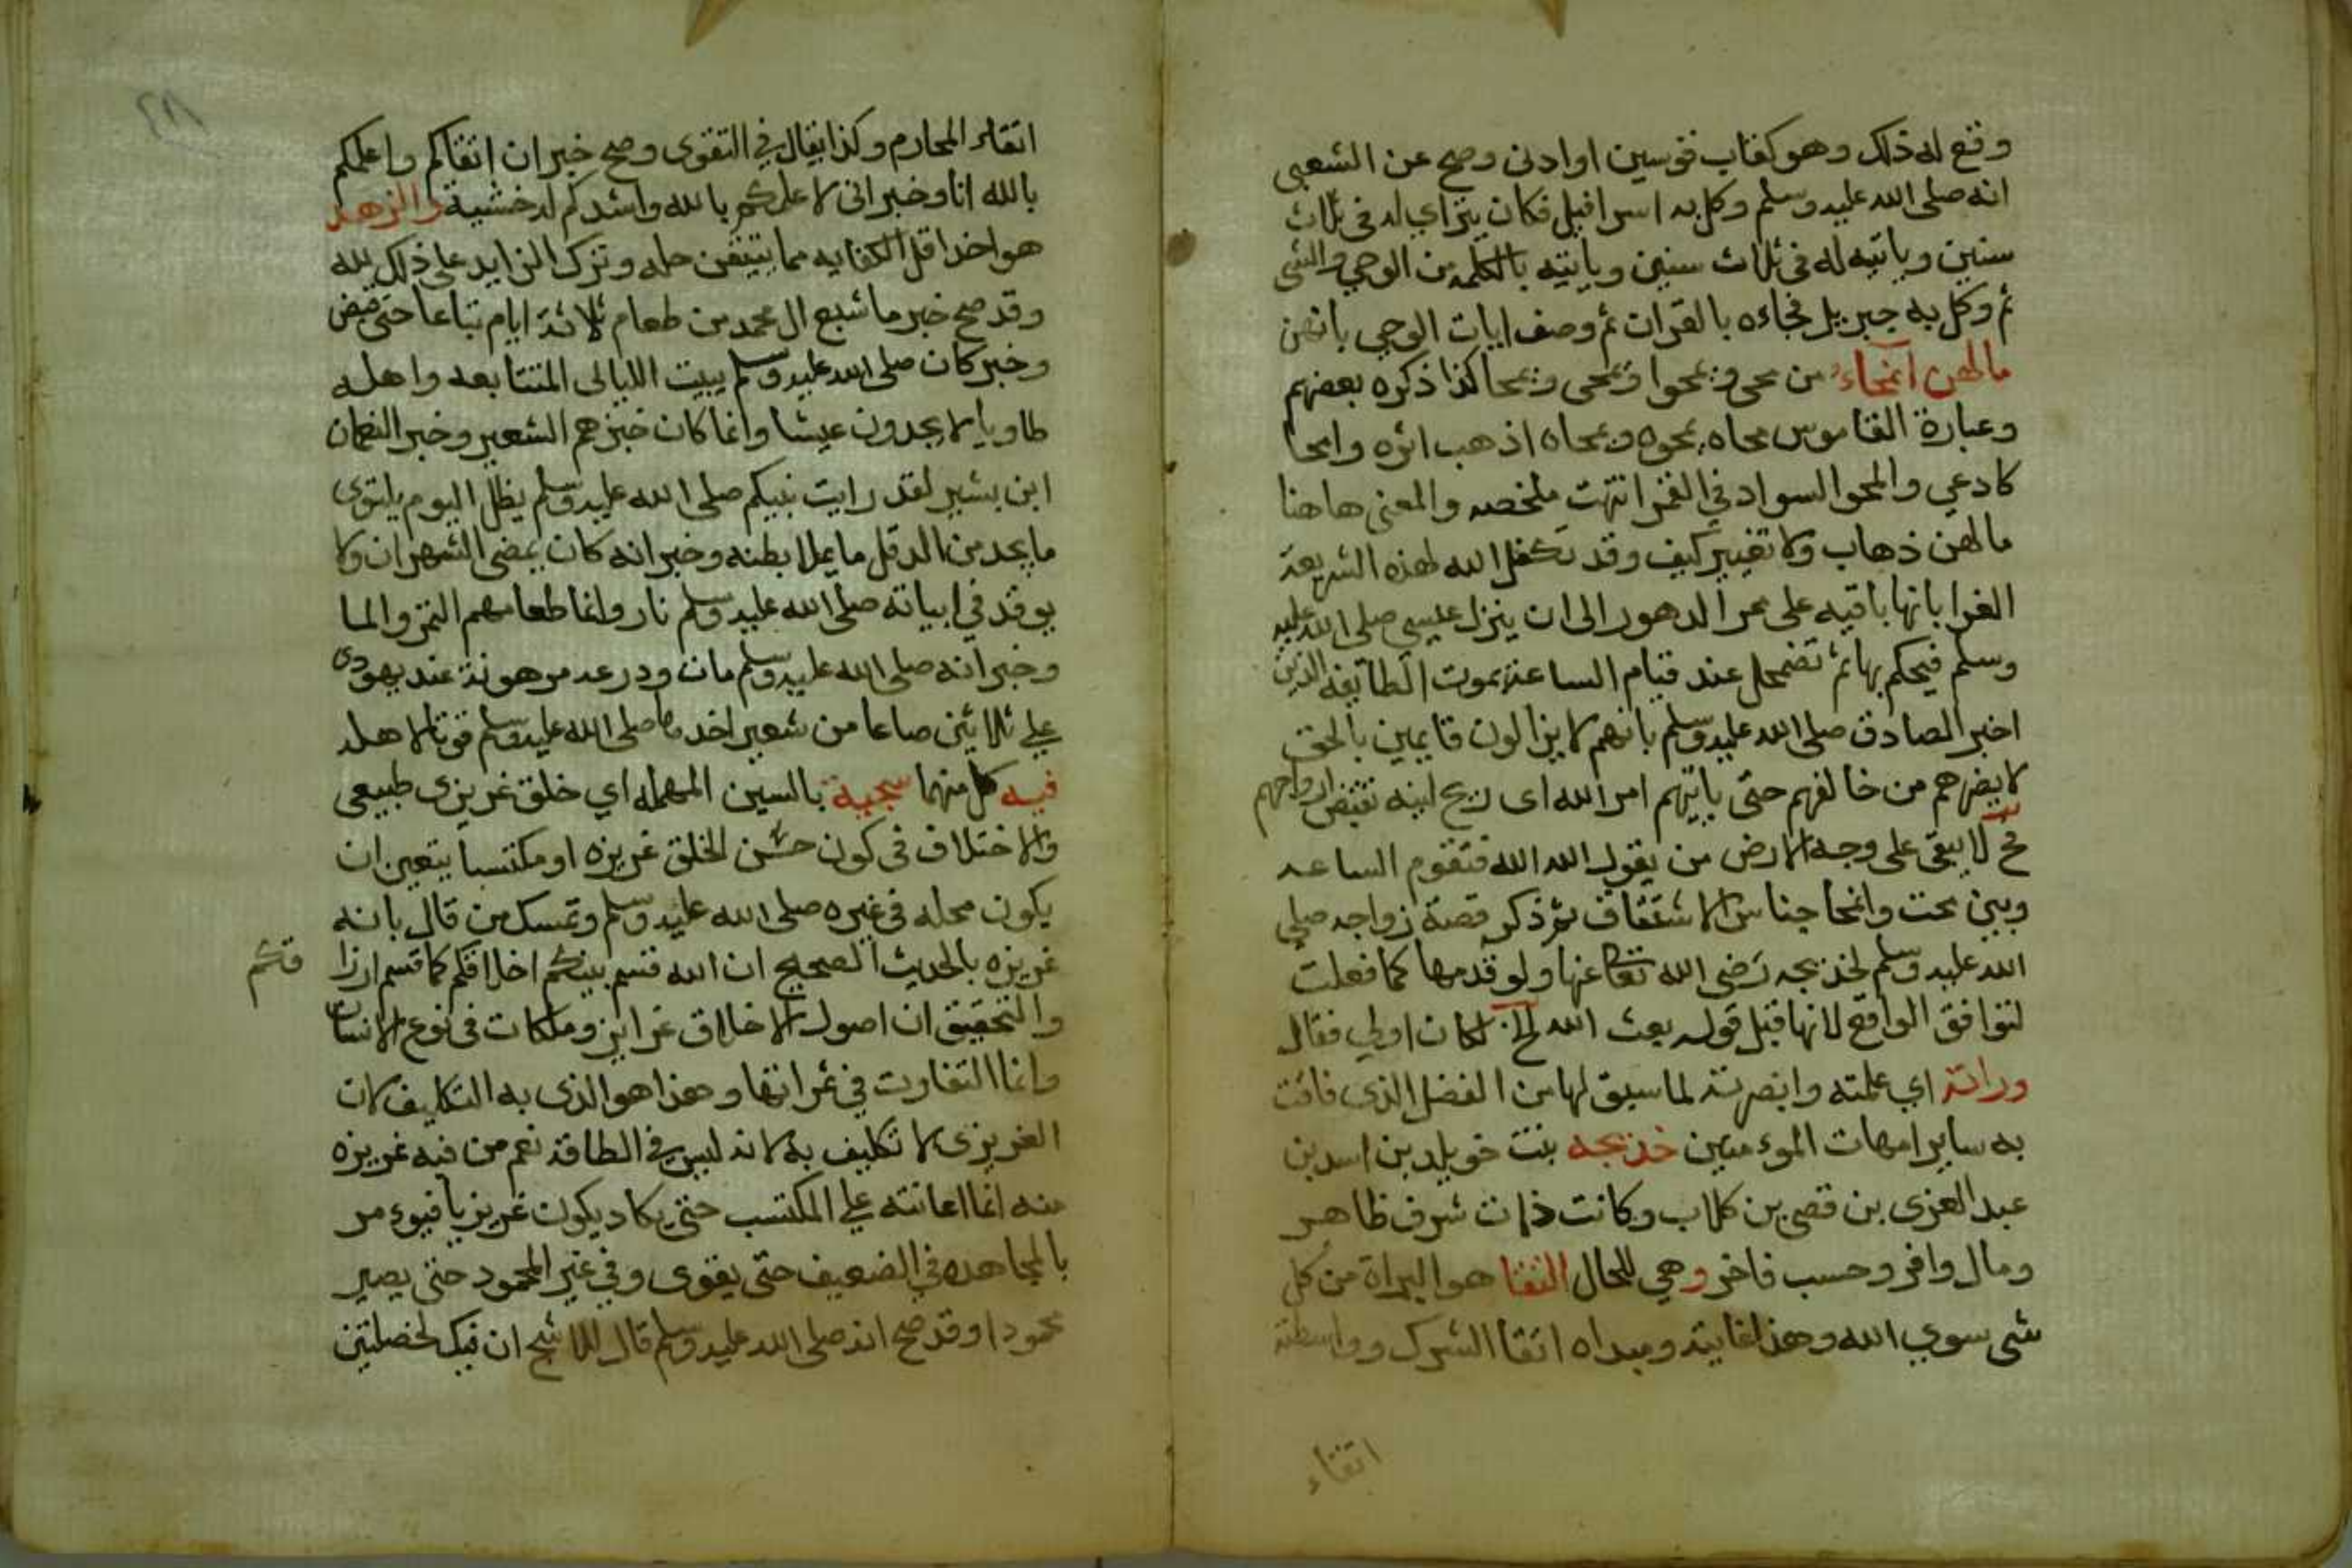 وقع له ذلك وهو كقاب قوسين او ادنى وصح عن الشعبي
انه صلى الله عليه وسلم وكل به اسرافيل فكان يتراي له في ثلاث
سنين وياتيه له في ثلاث سنين وياتيه بالكلمه من الوحي والشي
ثم وكل به جبريل فجاءه بالقران ثم وصف ايات الوحي بانهن
مالهن انمحاء من محى ويمحوا ويمحى ويمحا كذا ذكره بعضهم
وعبارة القاموس محاه يمحوه ويمحاه اذهب اثره وامحا
كادعي والمحو السواد في القمر انتهت ملخصه والمعنى هاهنا
مالهن ذهاب ولا تغيير كيف وقد تكفل الله لهذه الشريعة
الغرا بانها باقيه على ممر الدهور الى ان ينزل عيسى صلى الله عليه
وسلم فيحكم بها ثم تضمحل عند قيام الساعة بموت الطايفه الذين
اخبر الصادق صلى الله عليه وسلم بانهم لا يزالون قايمين بالحق
لا يضرهم من خالفهم حتى ياتيهم امر الله اى ريح لينه تقبض ارواحهم
فح لا يبقى على وجه الارض من يقول الله الله فتقوم الساعه
وبين محت وانمحا جناس الاشتقاق ثم ذكر قصة زواجه صلي
الله عليه وسلم لخديجه رضى الله تعالى عنها ولو قدمها كما فعلت
لتوافق الواقع لانها قبل قوله بعث الله الخ لكان اولي فقال
وراته اي علمته وابصرته لما سبق لها من الفضل الذى فاقت
به ساير امهات الموءمنين خديجه بنت خويلد بن اسد بن
عبد العزى بن قصى بن كلاب وكانت ذات شرف ظاهر
ومال وافر وحسب فاخر وهي للحال التقا هو البراة من كل
شى سوي الله وهذا غايته ومبداه اتقا الشرك وواسطته
اتقاء
اتقاء المحارم وكذا يقال في التقوى وصح خبر ان اتقاكم واعلمكم
بالله انا وخبر انى لاعلمكم بالله واشدكم له خشية والزهد
هو اخذ اقل الكفايه مما يتيقن حله وترك الزايد على ذلك لله
وقد صح خبر ما شبع ال محمد من طعام ثلاثة ايام تباعا حتى قبض
وخبر كان صلى الله عليه وسلم يبيت الليالى المتتابعه واهله
طاويا لا يجدون عيشا وانما كان خبزهم الشعير وخبر النعمان
ابن بشير لقد رايت نبيكم صلى الله عليه وسلم يظل اليوم يلتوى
ما يجد من الدقل ما يملا بطنه وخبر انه كان يمضى الشهران ولا
يوقد في ابياته صلى الله عليه وسلم نار وانما طعامهم التمر والما
وخبر انه صلى الله عليه وسلم مات ودرعه مرهونة عند يهودى
علي ثلاثين صاعا من شعير اخدها صلى الله عليه وسلم قوتا لاهله
فيه كل منهما سجية بالسين المهمله اي خلق غريزى طبيعى
والاختلاف فى كون حسن الخلق غريزه او مكتسبا يتعين ان
يكون محله في غيره صلى الله عليه وسلم وتمسك من قال بانه
غريزه بالحديث الصحيح ان الله قسم بينكم اخلاقكم كما قسم ارزا
قكم
والتحقيق ان اصول الاخلاق غرايز وملكات في نوع الانسان
وانما التفاوت في ثمراتها وهذا هو الذى به التكليف لان
الغريزى لا تكليف به لانه ليس في الطاقة نعم من فيه غريزه
منه انما اعانته علي المكتسب حتى يكاد يكون غريزيا فيوءمر
بالمجاهده في الضعيف حتى يقوى وفي غير المحمود حتى يصير
محمودا وقد صح انه صلى الله عليه وسلم قال للاشج ان فيك لخصلتين